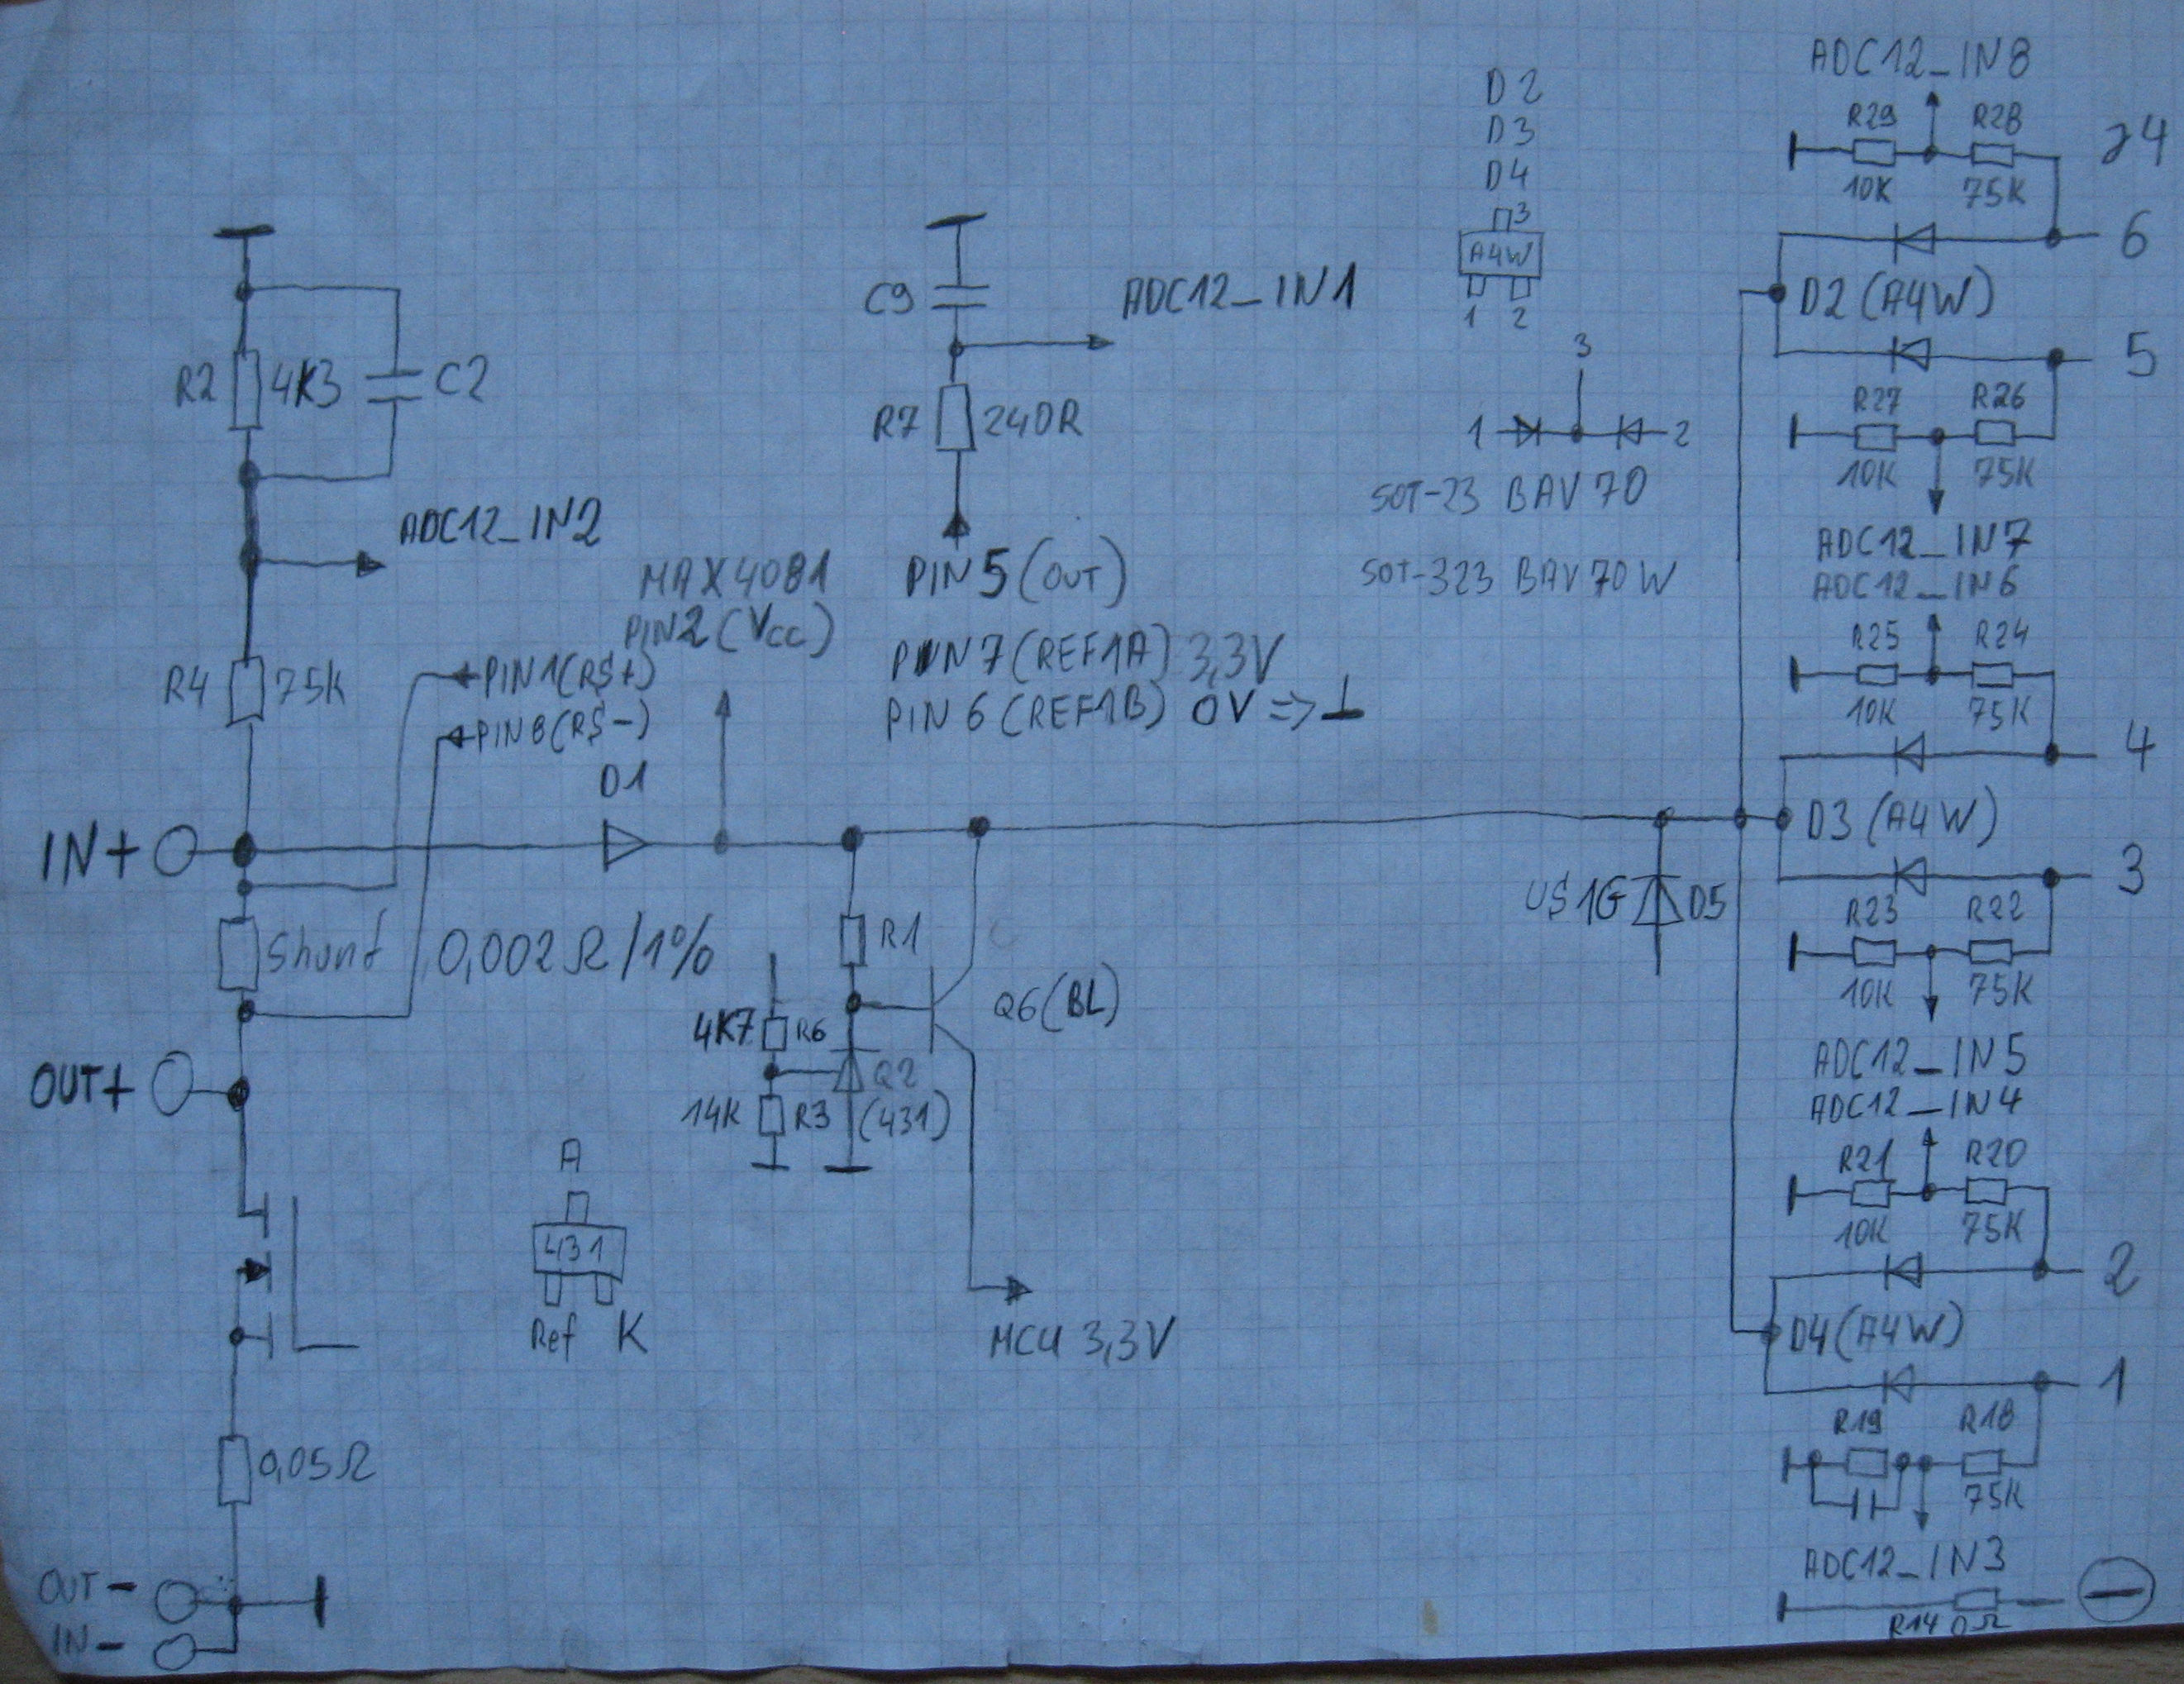 R2
4K3
C2
ADC12_IN2
R4
75K
PIN1(RS+)
PIN8(RS-)
MAX4081
PIN2(Vcc)
D1
IN+
Shunt
0,002Ω/1%
OUT+
0,05Ω
OUT-
IN-
A
431
Ref K
C9
ADC12_IN1
R7
240R
PIN5(OUT)
PIN7(REF1A) 3,3V
PIN6(REF1B) 0V =>
R1
4K7
R6
14K
R3
Q2
(431)
Q6(BL)
MCU 3,3V
D2
D3
D4
3
A4W
1 2
3
1 2
SOT-23 BAV70
SOT-323 BAV70W
US1G
D5
ADC12_IN8
R29 R28
10K 75K
6
D2(A4W)
5
R27 R26
10K 75K
ADC12_IN7
ADC12_IN6
R25 R24
10K 75K
4
D3(A4W)
3
R23 R22
10K 75K
ADC12_IN5
ADC12_IN4
R21 R20
10K 75K
2
D4(A4W)
1
R19 R18
75K
ADC12_IN3
R14 0Ω
-